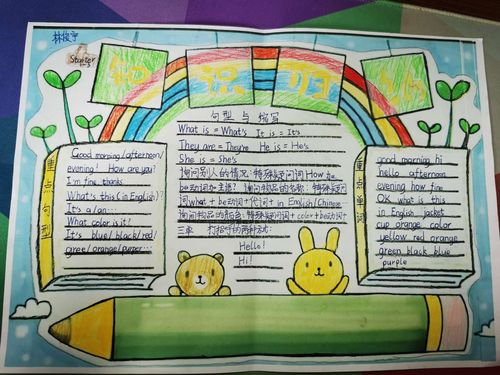 林俊宇
Starter
1-3
知识归纳
句型与缩写
What is = What's It is = It's
They are = They're He is = He's
She is = She's
询问别人的情况:特殊疑问词How+
be动词+主语? 询问物品的名称:特殊疑问
词what+be动词+代词+in English/Chinese
询问物品的颜色:特殊疑问词+color+be动词+
三单 打招呼的两种方式:
Hello!
Hi!
重点句型
Good morning/afternoon/
evening! How are you?
I'm fine, thanks
What's this (in English)?
It's a/an...
What color is it?
It's blue/black/red/
gree/orange/purper...
重点单词
good morning hi
hello afternoon
evening how fine
OK what is this
in English jacket
cup orange color
yellow red orange
green black blue
purple